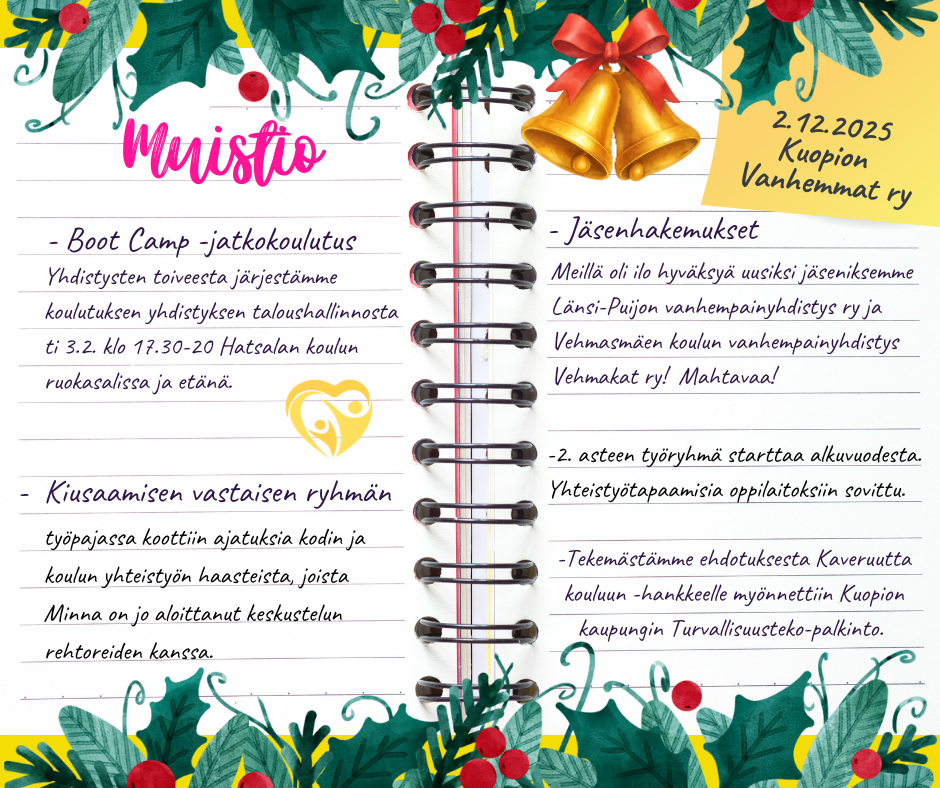 Muistio
- Boot Camp -jatkokoulutus
Yhdistysten toiveesta järjestämme
koulutuksen yhdistyksen taloushallinnosta
ti 3.2. klo 17.30-20 Hatsalan koulun
ruokasalissa ja etänä.
- Kiusaamisen vastaisen ryhmän
työpajassa koottiin ajatuksia kodin ja
koulun yhteistyön haasteista, joista
Minna on jo aloittanut keskustelun
rehtoreiden kanssa.
2.12.2025
Kuopion
Vanhemmat ry
- Jäsenhakemukset
Meillä oli ilo hyväksyä uusiksi jäseniksemme
Länsi-Puijon vanhempainyhdistys ry ja
Vehmasmäen koulun vanhempainyhdistys
Vehmakat ry! Mahtavaa!
-2. asteen työryhmä starttaa alkuvuodesta.
Yhteistyötapaamisia oppilaitoksiin sovittu.
-Tekemästämme ehdotuksesta Kaveruutta
kouluun -hankkeelle myönnettiin Kuopion
kaupungin Turvallisuusteko-palkinto.